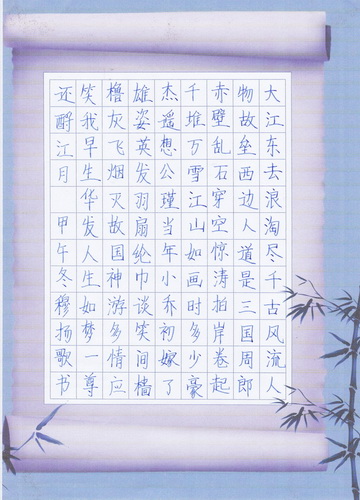 大江东去浪淘尽千古风流人
物故垒西边人道是三国周郎
赤壁乱石穿空惊涛拍岸卷起
千堆万雪江山如画时多少豪
杰遥想公瑾当年小乔初嫁了
雄姿英发羽扇纶巾谈笑间樯
橹灰飞烟灭故国神游多情应
笑我早生华发人生如梦一尊
还酹江月 甲午冬穆扬歌书